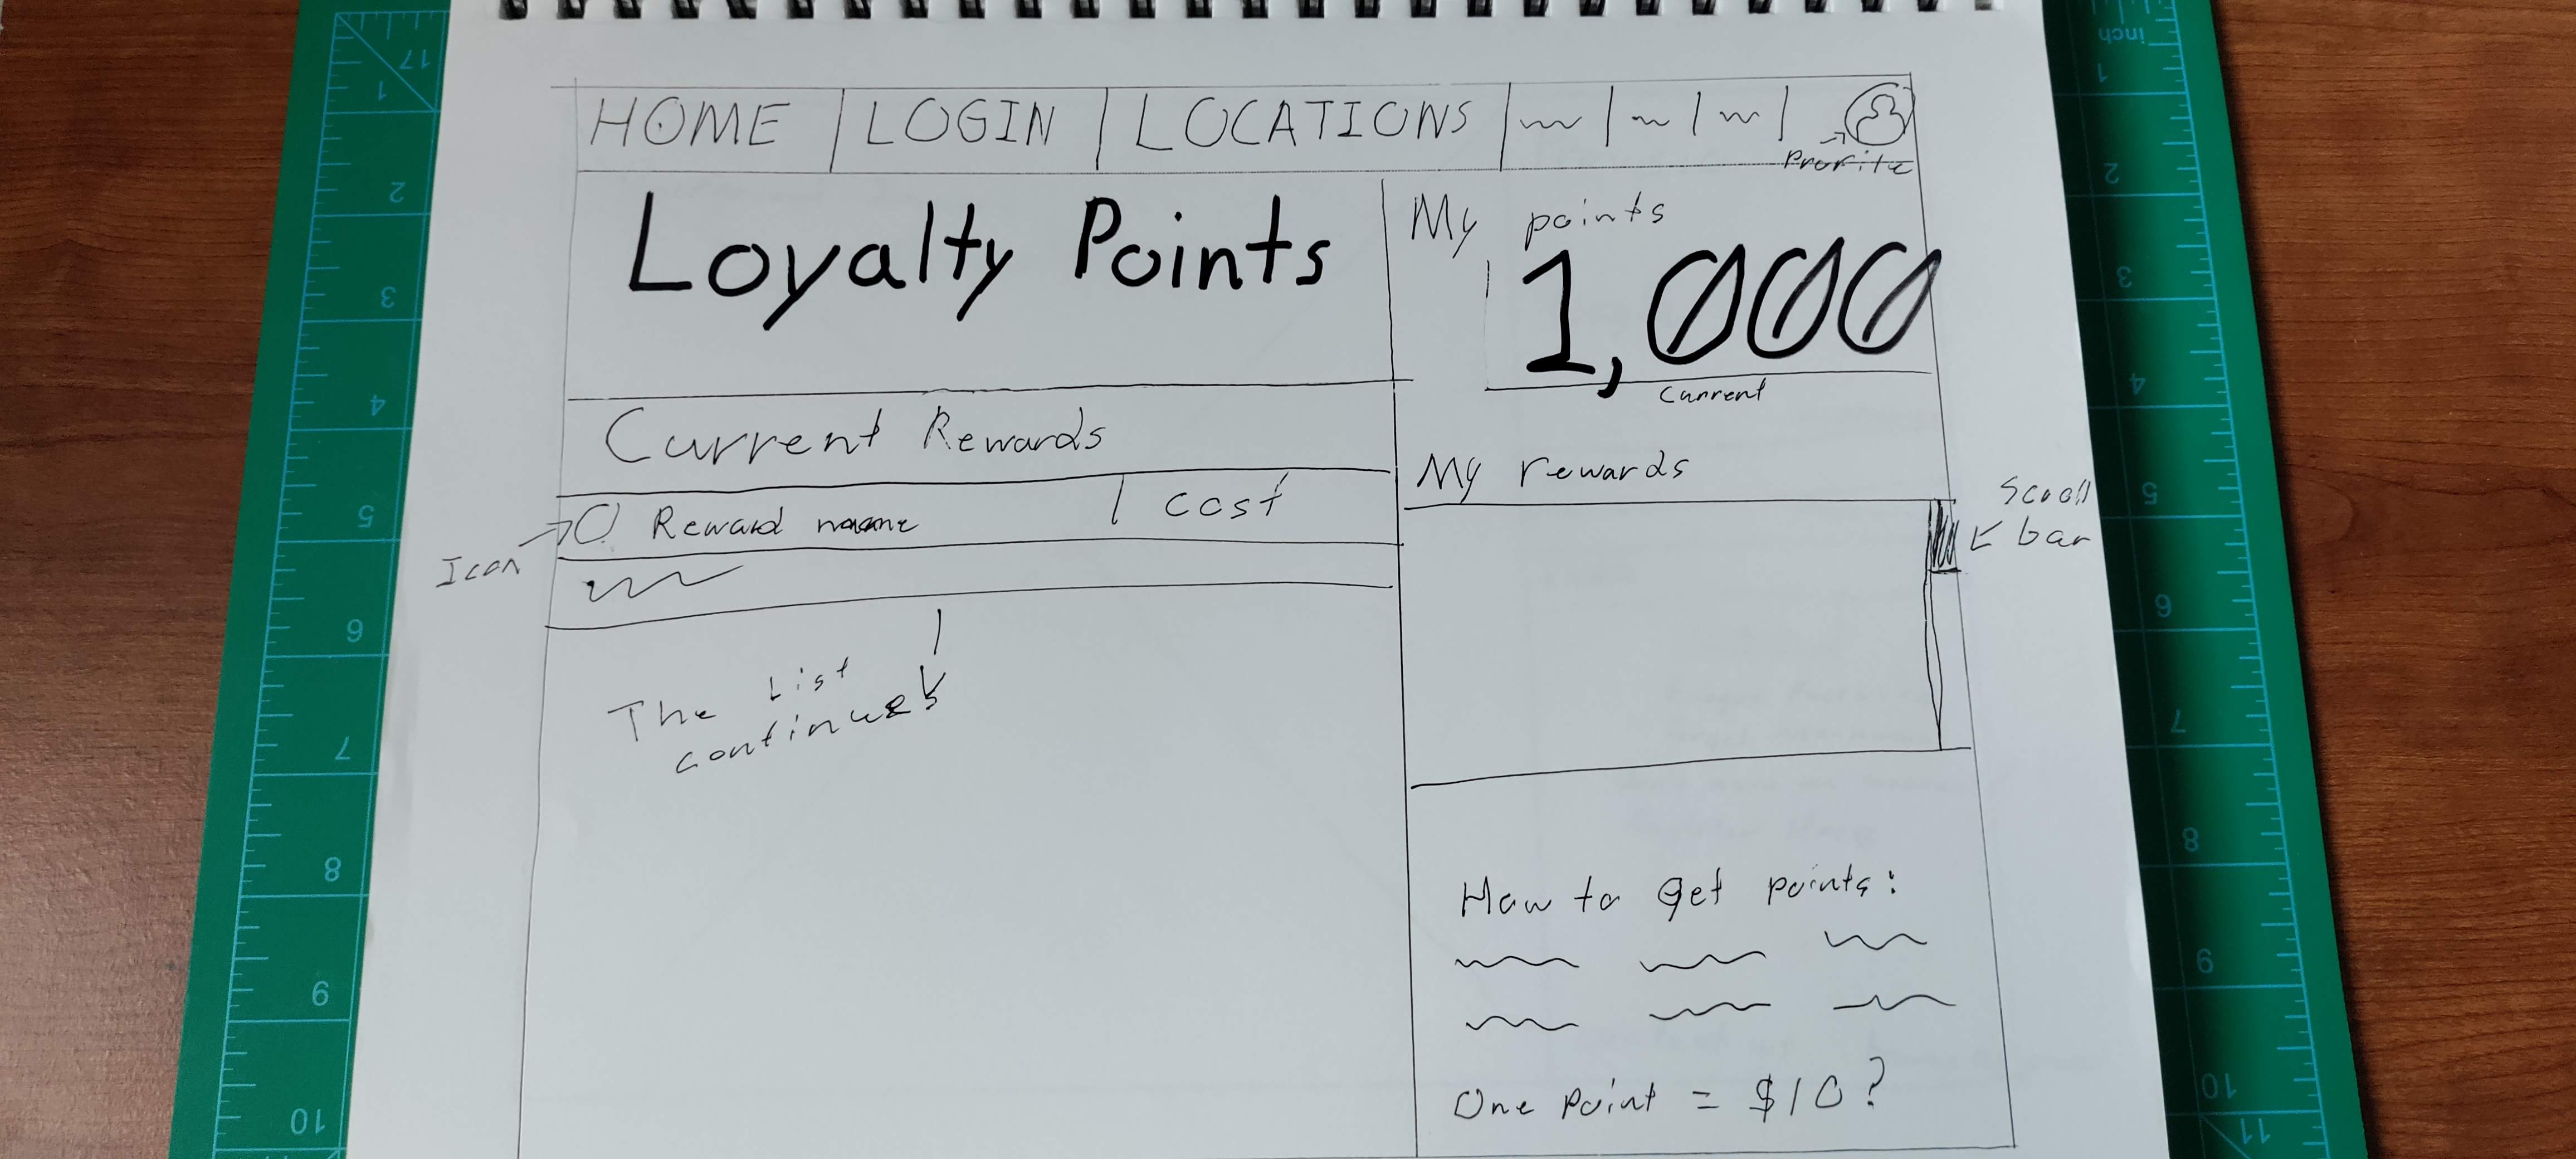 HOME | LOGIN | LOCATIONS
Profile
Loyalty Points
My points
1,000
Current
Current Rewards
Reward name | cost
Icon
The List
continues
My rewards
Scroll
bar
How to get points:
One point = $10?
17
1
2
3
4
5
6
7
8
9
10
inch
1
2
3
4
5
6
7
8
9
10
11